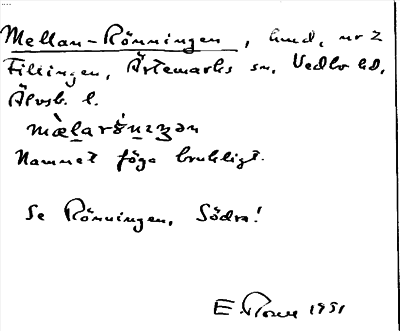 Mellan-Rönningen, hmd, nr 2
Fillingen, Ärtemarks sn, Vedbo hd,
Älvsb. l.
Namnet föga brukligt.
Se Rönningen, Södra!
E. 1951